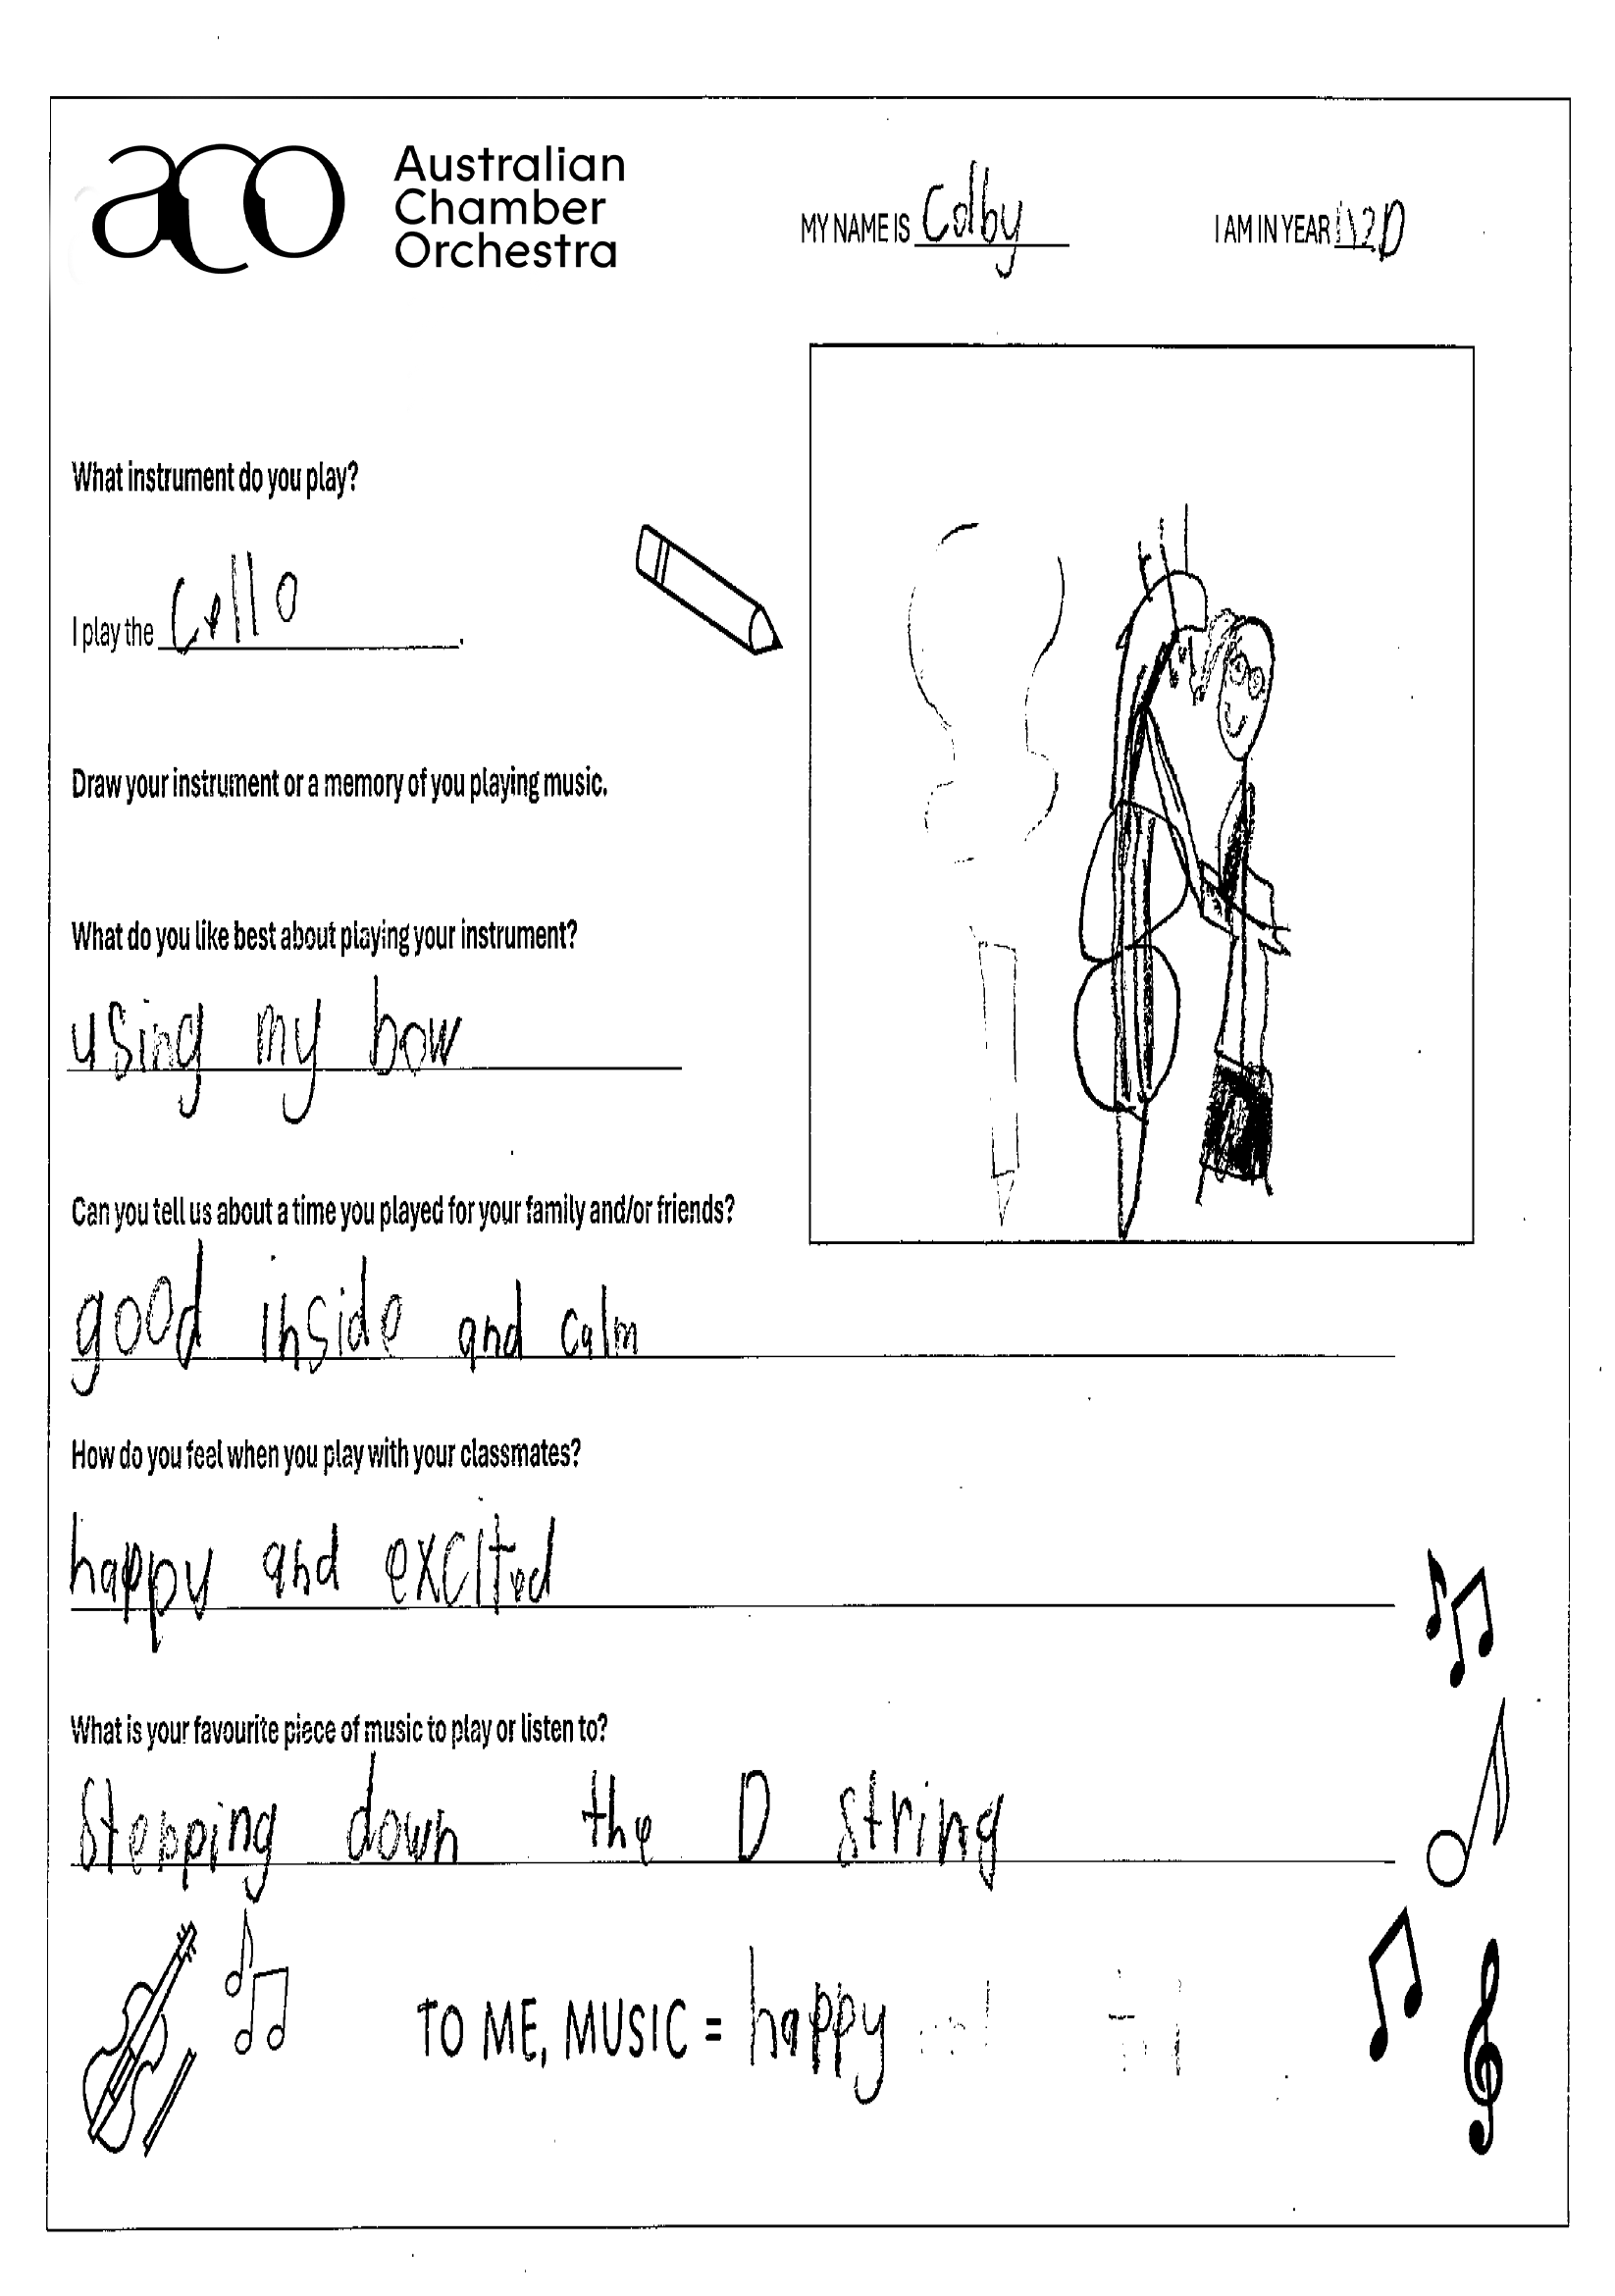 aco Australian
Chamber
Orchestra
MY NAME IS Colby
I AM IN YEAR 1/2D
What instrument do you play?
I play the Cello.
Draw your instrument or a memory of you playing music.
What do you like best about playing your instrument?
using my bow
Can you tell us about a time you played for your family and/or friends?
good inside and calm
How do you feel when you play with your classmates?
happy and excited
What is your favourite piece of music to play or listen to?
Stepping down the D string
TO ME, MUSIC = happy